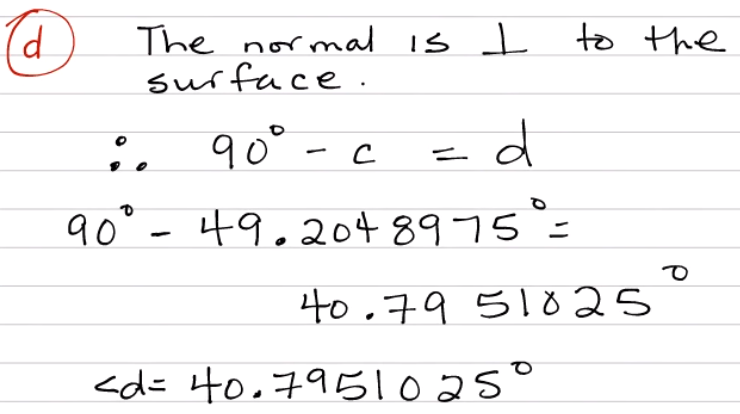 d The normal is ⊥ to the
surface.
∴ 90° - c = d
90° - 49.2048975° =
40.7951025°
<d = 40.7951025°